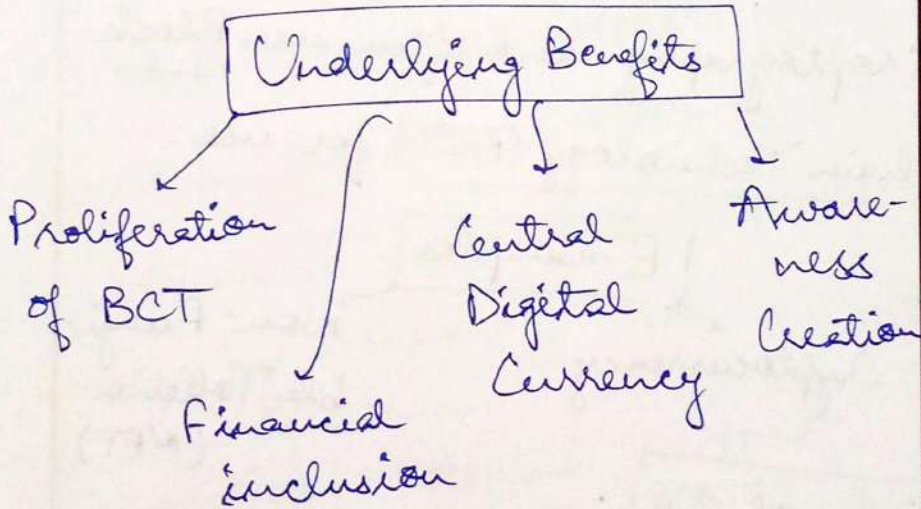 Underlying Benefits
Proliferation
of BCT
Financial
inclusion
Central
Digital
Currency
Aware-
ness
Creation